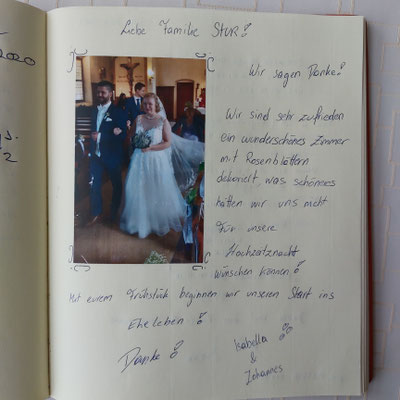 Liebe Familie Stur!
2020
Wir sagen Danke!
Wir sind sehr zufrieden
ein wunderschönes Zimmer
mit Rosenblättern
dekoriert was schönres
hätten wir uns nicht
für unsere
Hochzeitznacht
wünschen können!
Mit eurem Frühstück beginnen wir unseren Start ins
Eheleben!
Danke!
Isabella
&
Johannes